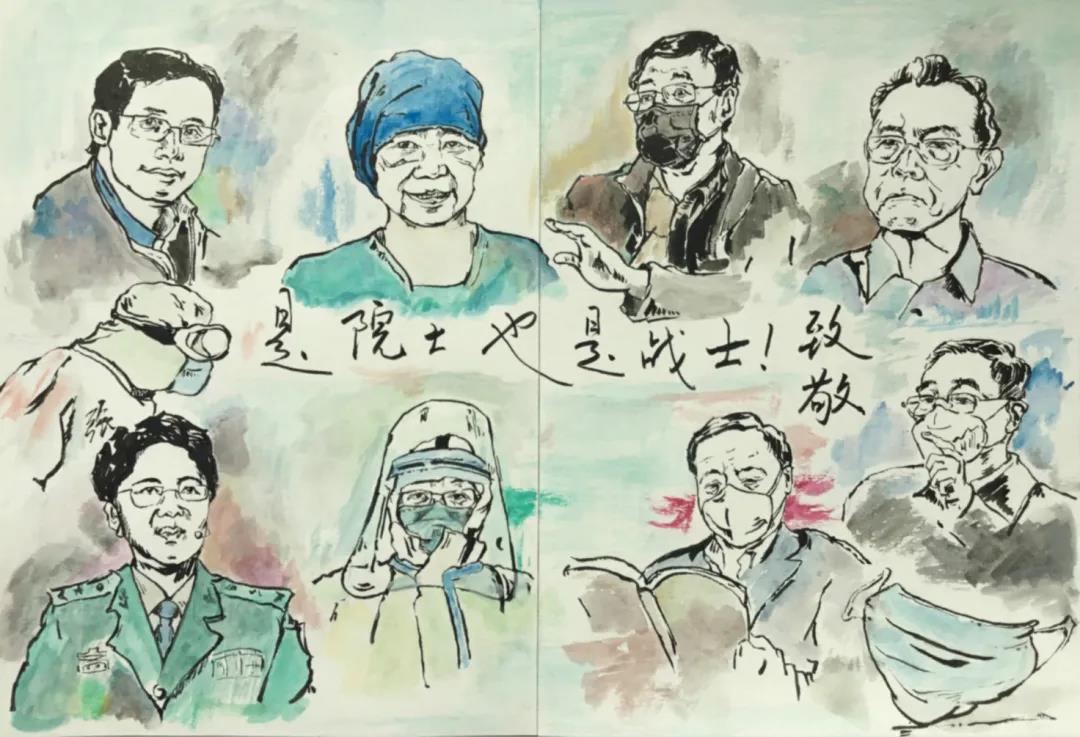 是院士也是战士!致
敬
张